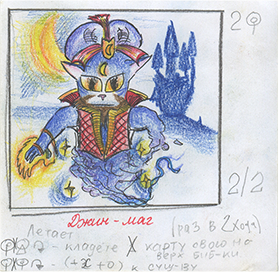 2
2/2
Джин-маг
Летает (раз в 2 хода)
- кладёте X карту свою на
верх биб-ки
- (+X +0) к сущ-ву